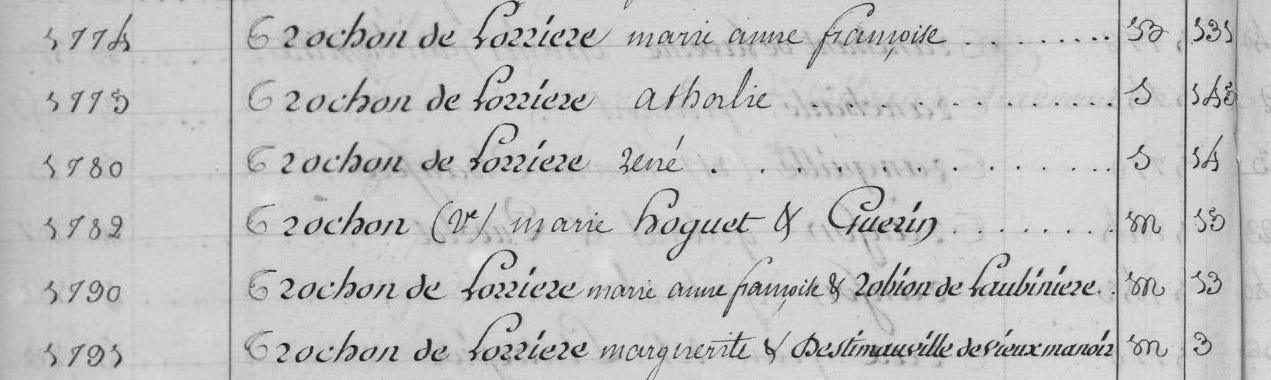 1774 Trochon de Lorriere marie anne françoise . . . . . . . . . B 131
1775 Trochon de Lorriere athalie . . . . . . . . . . . S 145
1780 Trochon de Lorriere rené . . . . . . . . . . . . S 14
1782 Trochon (Ve) marie hoguet & Guerin . . . . . . . . m 15
1790 Trochon de Lorriere marie anne françoise & robion de Laubiniere . m 13
1791 Trochon de Lorriere marguerite & Destimauville de vieux manoir m 3